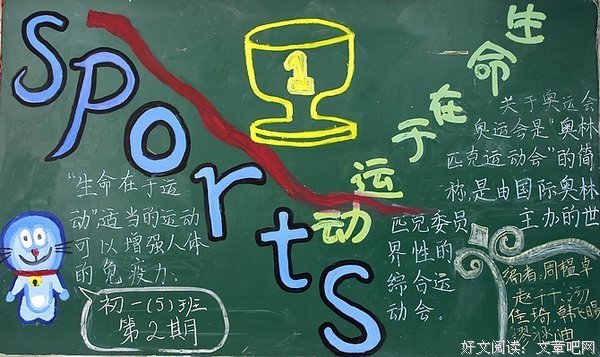 Sports
1
生命在于运动
“生命在于运
动”适当的运动
可以增强人体
的免疫力.
初一(5)班
第2期
关于奥运会
奥运会是“奥林
匹克运动会”的简
称,是由国际奥林
匹克委员 王办的世
界性的
综合运
动会。
编者:周楹卓
赵千千,汤
佳琦,韩
好文阅读：文章吧网